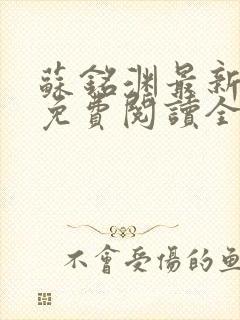 蘇銘渊最新
免費閱讀全
不會受傷的魚